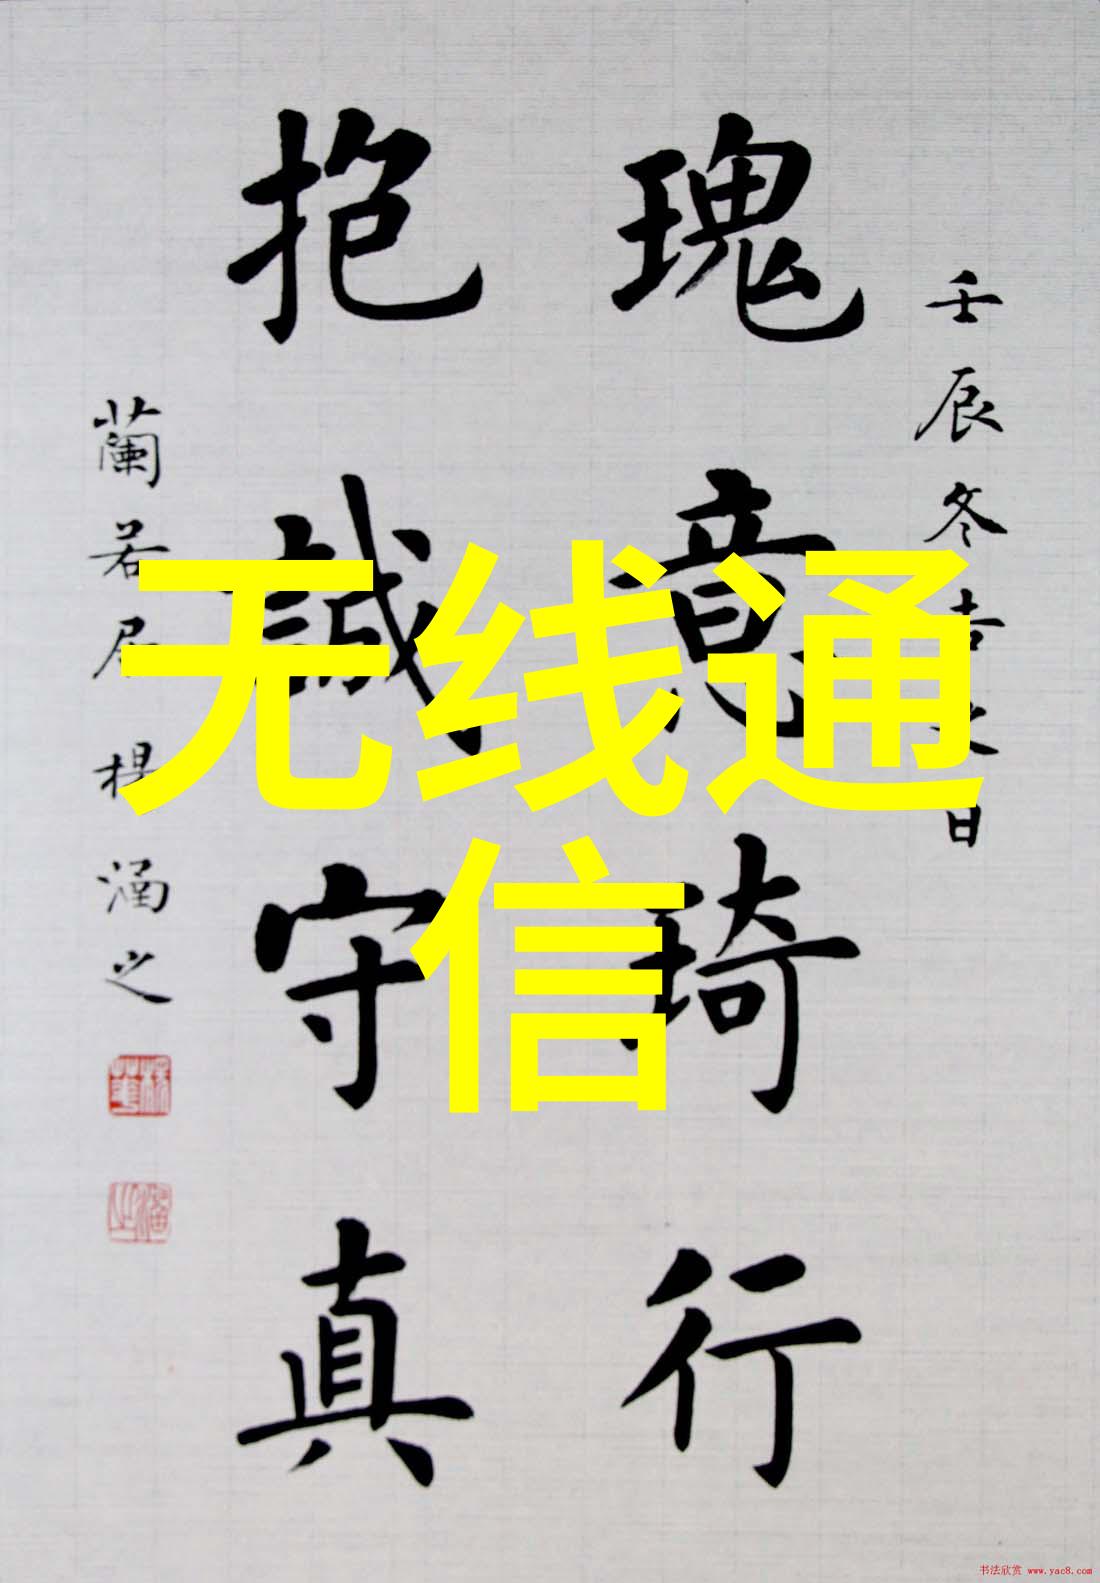 壬辰冬吉之日
瑰意琦行
抱誠守真
蘭若居楊涵之
无线通
信
书法欣赏 www.yac8.com